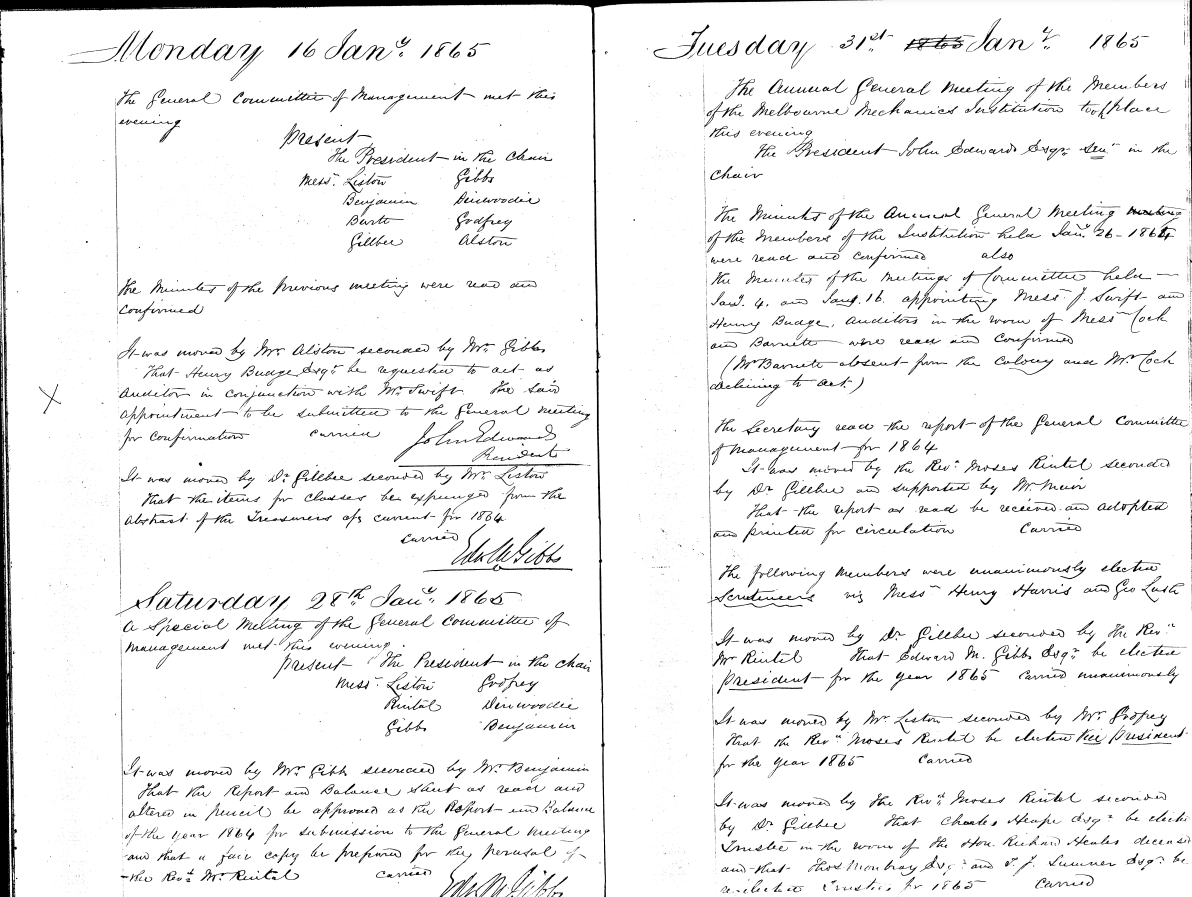 Monday 16 Jany. 1865
The General Committee of Management met this
evening
Present
The President in the chair
Messrs. Liston Gibbs
Benjamin Dinwoodie
Godfrey
Gillbee Alston
The Minutes of the Previous meeting were read and
confirmed
It was moved by Mr. Alston seconded by Mr. Gibbs
That Henry Budge Esqr. be requested to act as
Auditor in conjunction with Mr. Swift The said
appointment to be submitted to the General Meeting
for confirmation carried John Edwards
President
It was moved by Dr. Gillbee seconded by Mr. Liston
That the items for classes be expunged from the
Abstract of the Treasurers a/c current for 1864
carried
Edw M Gibbs
Saturday 28th Jany. 1865
A Special Meeting of the General Committee of
Management met this evening.
Present The President in the chair
Messrs. Liston Godfrey
Rintel Dinwoodie
Gibbs Benjamin
It was moved by Mr. Gibbs seconded by Mr. Benjamin
That the Report and Balance Sheet as read and
altered in pencil be approved as the Report and Balance
of the year 1864 for submission to the General Meeting
and that a fair copy be prepared for the perusal of
the Revd. Mr. Rintel carried
Edw M Gibbs
Tuesday 31st. 1865 Jany. 1865
The Annual General Meeting of the Members
of the Melbourne Mechanics Institution took place
this evening
The President John Edwards Esqr. Senr in the
chair
The Minutes of the Annual General Meeting meeting
of the Members of the Institution held Jany. 26 - 1864
were read and confirmed also
the Minutes of the Meetings of Committee held
Jany. 4. and Jany. 16. appointing Messrs J. Swift and
Henry Budge, Auditors in the room of Messrs Cock
and Barnett were read and confirmed
(Mr Barnett absent from the Colony and Mr. Cock
declining to act.)
The Secretary read the report of the General Committee
of Management for 1864
It was moved by the Revd. Moses Rintel seconded
by Dr Gillbee and supported by Mr. Muir
That the report as read be received and adopted
and printed for circulation Carried
The following Members were unanimously elected
Scrutineers viz Messrs Henry Harris and Geo Lush
It was moved by Dr Gillbee seconded by the Revd.
Mr Rintel That Edward M. Gibbs Esqr. be elected
President for the year 1865 carried unanimously
It was moved by Mr. Liston seconded by Mr. Godfrey
That the Revd. Moses Rintel be elected Vice President
for the year 1865 carried
It was moved by the Revd. Moses Rintel seconded
by Dr Gillbee That Charles Heape Esqr. be elected
Trustee in the room of the Hon. Richard Heales deceased
and that Thos Monbray Esqr. and T. J. Sumner Esqr. be
re-elected Trustees for 1865 Carried